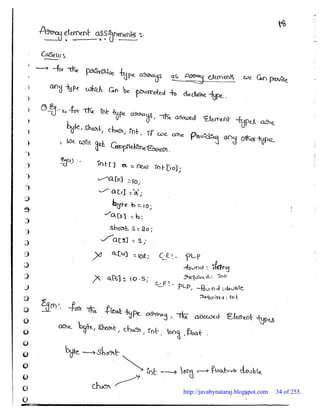 18
Array element assignments :-
Case(1) :
→ for the primitive type arrays as Array elements we Can provide
any type which Can be promoted to declare type.
① Eg:- for the int type arrays, the allowed Element types are
byte, short, char, int, if we are Providing any other type
we will get CompiletimeError.
Eg(1) :- int[] a = new int[10];
✓ a[0] = 10;
✓ a[1] = 'a';
byte b = 10;
✓ a[2] = b;
short s = 20;
✓ a[3] = s;
✗ a[4] = 10l; C.E! - PLP
found : long
required : int
✗ a[5] = 10.5; C.E! - PLP, found : double
required : int
Eg(2):- for the float type arrays, the allowed Element types
are byte, short, char, int, long, float.
byte → short
int → long → float → double
char
http://javabynataraj.blogspot.com 34 of 255.